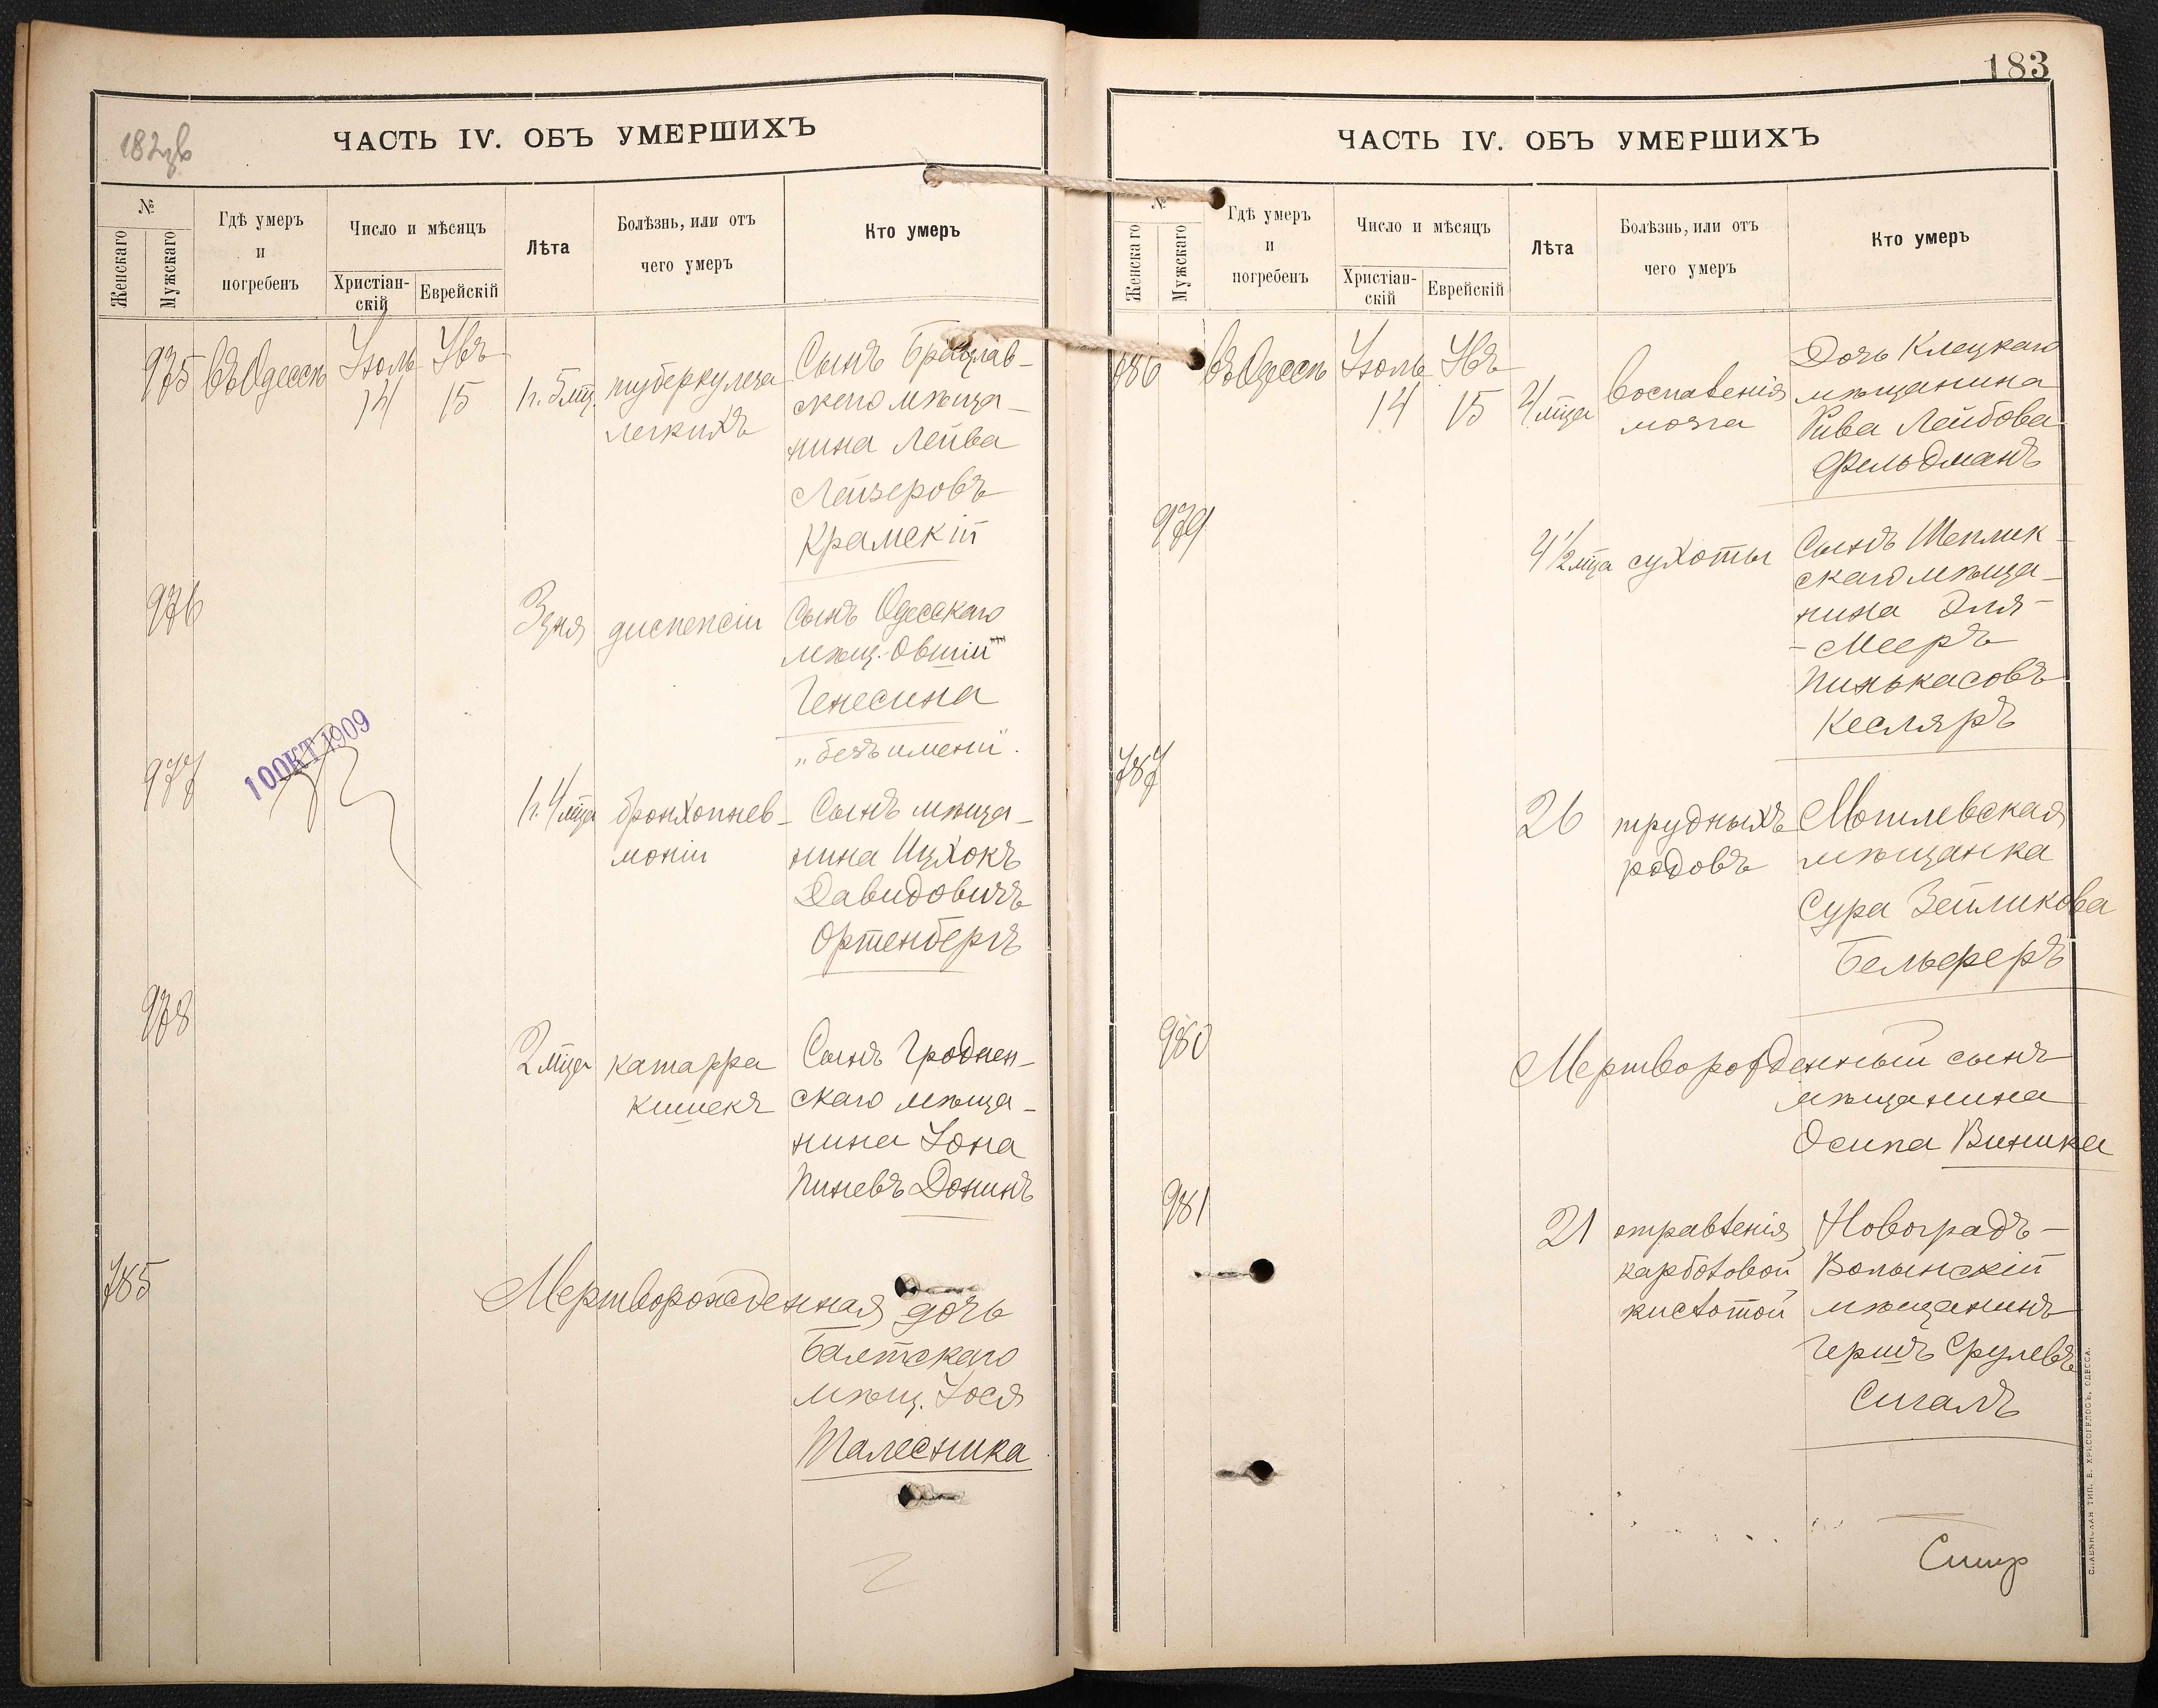 182зв
ЧАСТЬ IV. ОБЪ УМЕРШИХЪ
№
Женскаго
Мужскаго
Гдѣ умеръ
и
погребенъ
Число и мѣсяцъ
Христіан-
скій
Еврейскій
Лѣта
Болѣзнь, или отъ
чего умеръ
Кто умеръ
975 въ Одессѣ Іюль 14 Явъ 15 1г. 5мц. туберкулеза
легкихъ
Сынъ Брацлав-
скаго мѣща-
нина Лейва
Лейзеровъ
Крамскій
976 3 дня диспепсіи Сынъ Одесскаго
мѣщ. Овшии
Генесина
„безъ имени".
10 ОКТ 1909
977 1г. 4 мца бронхопнев-
моніи
Сынъ мѣща-
нина Ицхокъ
Давидовичъ
Ортенбергъ
978 2 мца катарра
кишекъ
Сынъ Гроднен-
скаго мѣща-
нина Іона
Пиневъ Донинъ
785 Мертворожденная дочь
Балтскаго
мѣщ. Іося
Талесника
183
ЧАСТЬ IV. ОБЪ УМЕРШИХЪ
№
Женскаго
Мужскаго
Гдѣ умеръ
и
погребенъ
Число и мѣсяцъ
Христіан-
скій
Еврейскій
Лѣта
Болѣзнь, или отъ
чего умеръ
Кто умеръ
786 въ Одессѣ Іюль 14 Явъ 15 4 мца воспаленія
мозга
Дочь Клецкаго
мѣщанина
Рива Лейбова
Фельдманъ
979 4 1/2 мца сухоты Сынъ Теплик-
скаго мѣща-
нина Эля-
-Мееръ
Пинькасовъ
Кесляръ
787 26 трудныхъ
родовъ
Могилевская
мѣщанка
Сура Зейликова
Бельферъ
980 Мертворожденный сынъ
мѣщанина
Осипа Виника
981 21 отравленія
карболовой
кислотой
Новоградъ-
Волынскій
мѣщанинъ
Гершъ Срулевъ
Сигалъ
СЛАВЯНСКАЯ ТИП. Е. ХРИСОГЕЛОСЪ, ОДЕССА.